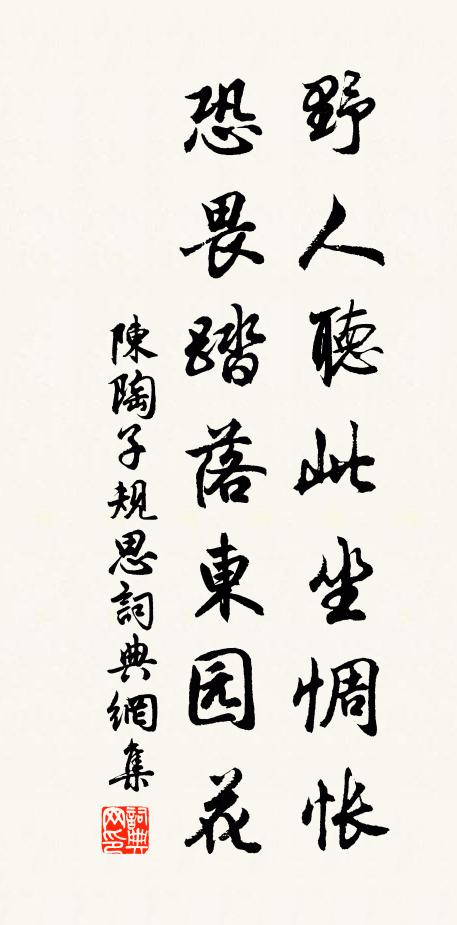 野人聽此坐惆怅
恐畏踏落東园花
陳陶子规思詞典網集
詞典网印